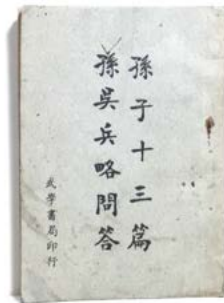 孫子十三篇
孫吳兵略問答
武學書局印行